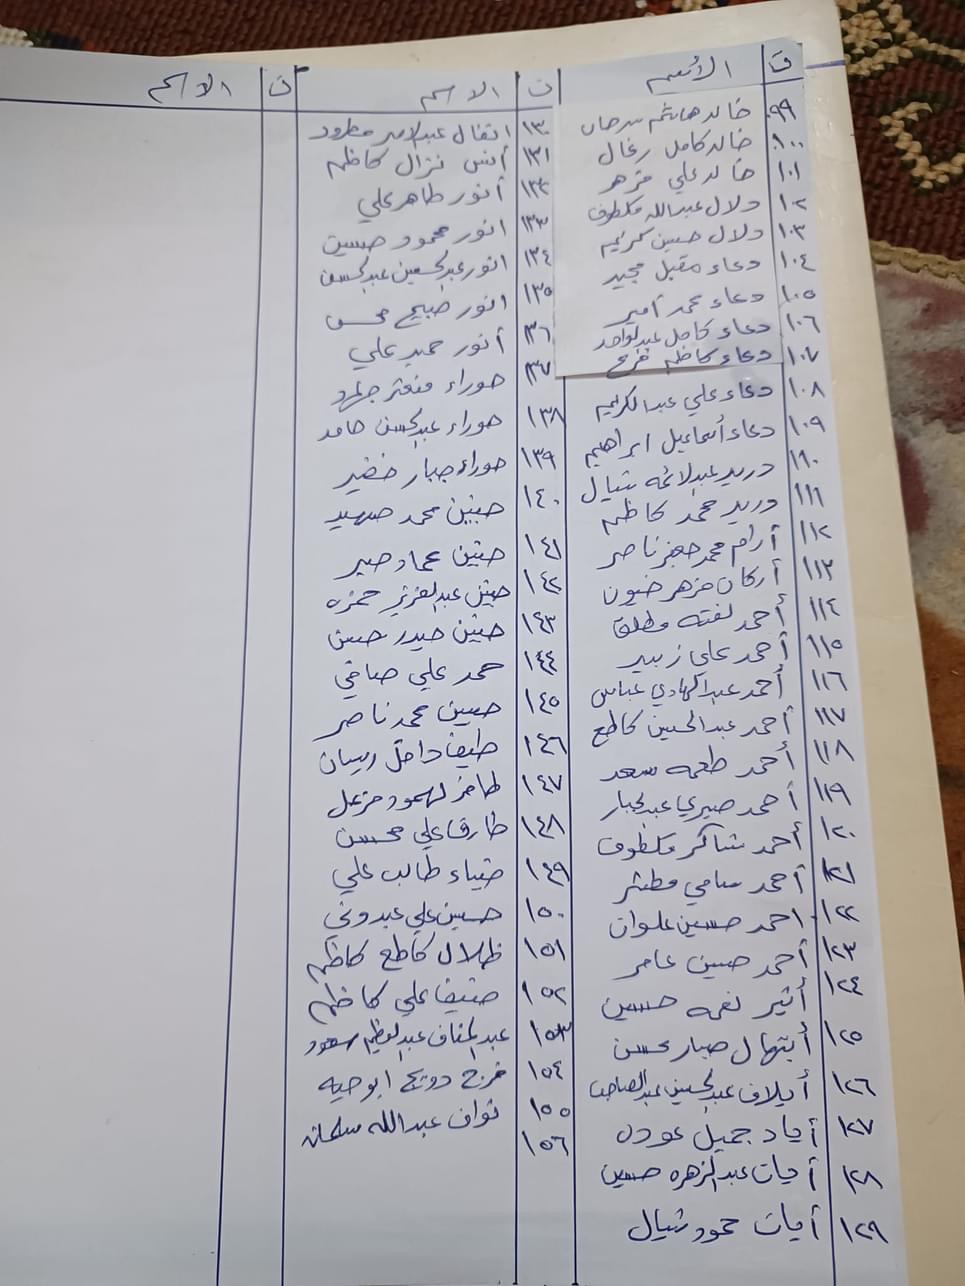 ت الأسم
٩٩ خالد هاشم سرحان
١٠٠ خالد كامل رغال
١٠١ خالد علي مزهر
١٠٢ دلال عبدالله مكطوف
١٠٣ دلال حسين كريم
١٠٤ دعاء مقبل مجيد
١٠٥ دعاء محمد أمير
١٠٦ دعاء كامل عبدالواحد
١٠٧ دعاء كاظم فرج
١٠٨ دعاء علي عبدالكريم
١٠٩ دعاء أسماعيل ابراهيم
١١٠ دريد عبدالائمه شيال
١١١ دريد محمد كاظم
١١٢ أرام محمد جعفر ناصر
١١٣ أركان مزهر خيون
١١٤ أحمد لفته مطلق
١١٥ أحمد علي زبير
١١٦ أحمد عبدالهادي عباس
١١٧ أحمد عبدالحسين كاطع
١١٨ أحمد طعمه سعد
١١٩ أحمد صبري عبدالجبار
١٢٠ أحمد شاكر مكطوف
١٢١ أحمد سامي مطشر
١٢٢ احمد حسين علوان
١٢٣ أحمد حسين عامر
١٢٤ أثير نعمه حسين
١٢٥ أبتهال صبار محسن
١٢٦ أيلاف عبدالحسين عبدالصاحب
١٢٧ أياد جميل عوده
١٢٨ أيات عبدالزهره حسين
١٢٩ أيات حمود شيال
ت الاسم
١٣٠ انفال عبدالامير مطرود
١٣١ أنس نزال كاظم
١٣٢ أنور طاهر علي
١٣٣ انور محمود حسين
١٣٤ انور عبدالحسين عبدالحسن
١٣٥ انور صبيح محسن
١٣٦ أنور حميد علي
١٣٧ حوراء منعثر
١٣٨ حوراء عبدالحسن حامد
١٣٩ حوراء جبار خضير
١٤٠ حنين محمد
١٤١ حنين عماد صبر
١٤٢ حنين عبدالعزيز حمزه
١٤٣ حنين حيدر حسن
١٤٤ حمد علي صافي
١٤٥ حسين محمد ناصر
١٤٦ طيف داخل رسان
١٤٧ ظافر لهمود مزعل
١٤٨ طارق علي محسن
١٤٩ ضياء طالب علي
١٥٠ حسين علي عبدوني
١٥١ ظلال كاطع كاظم
١٥٢ علي كاظم
١٥٣ عبدالعظيم سعود
١٥٤ فرج دويج ابوحيه
١٥٥ نواف عبدالله سلمان
١٥٦
ت الاسم